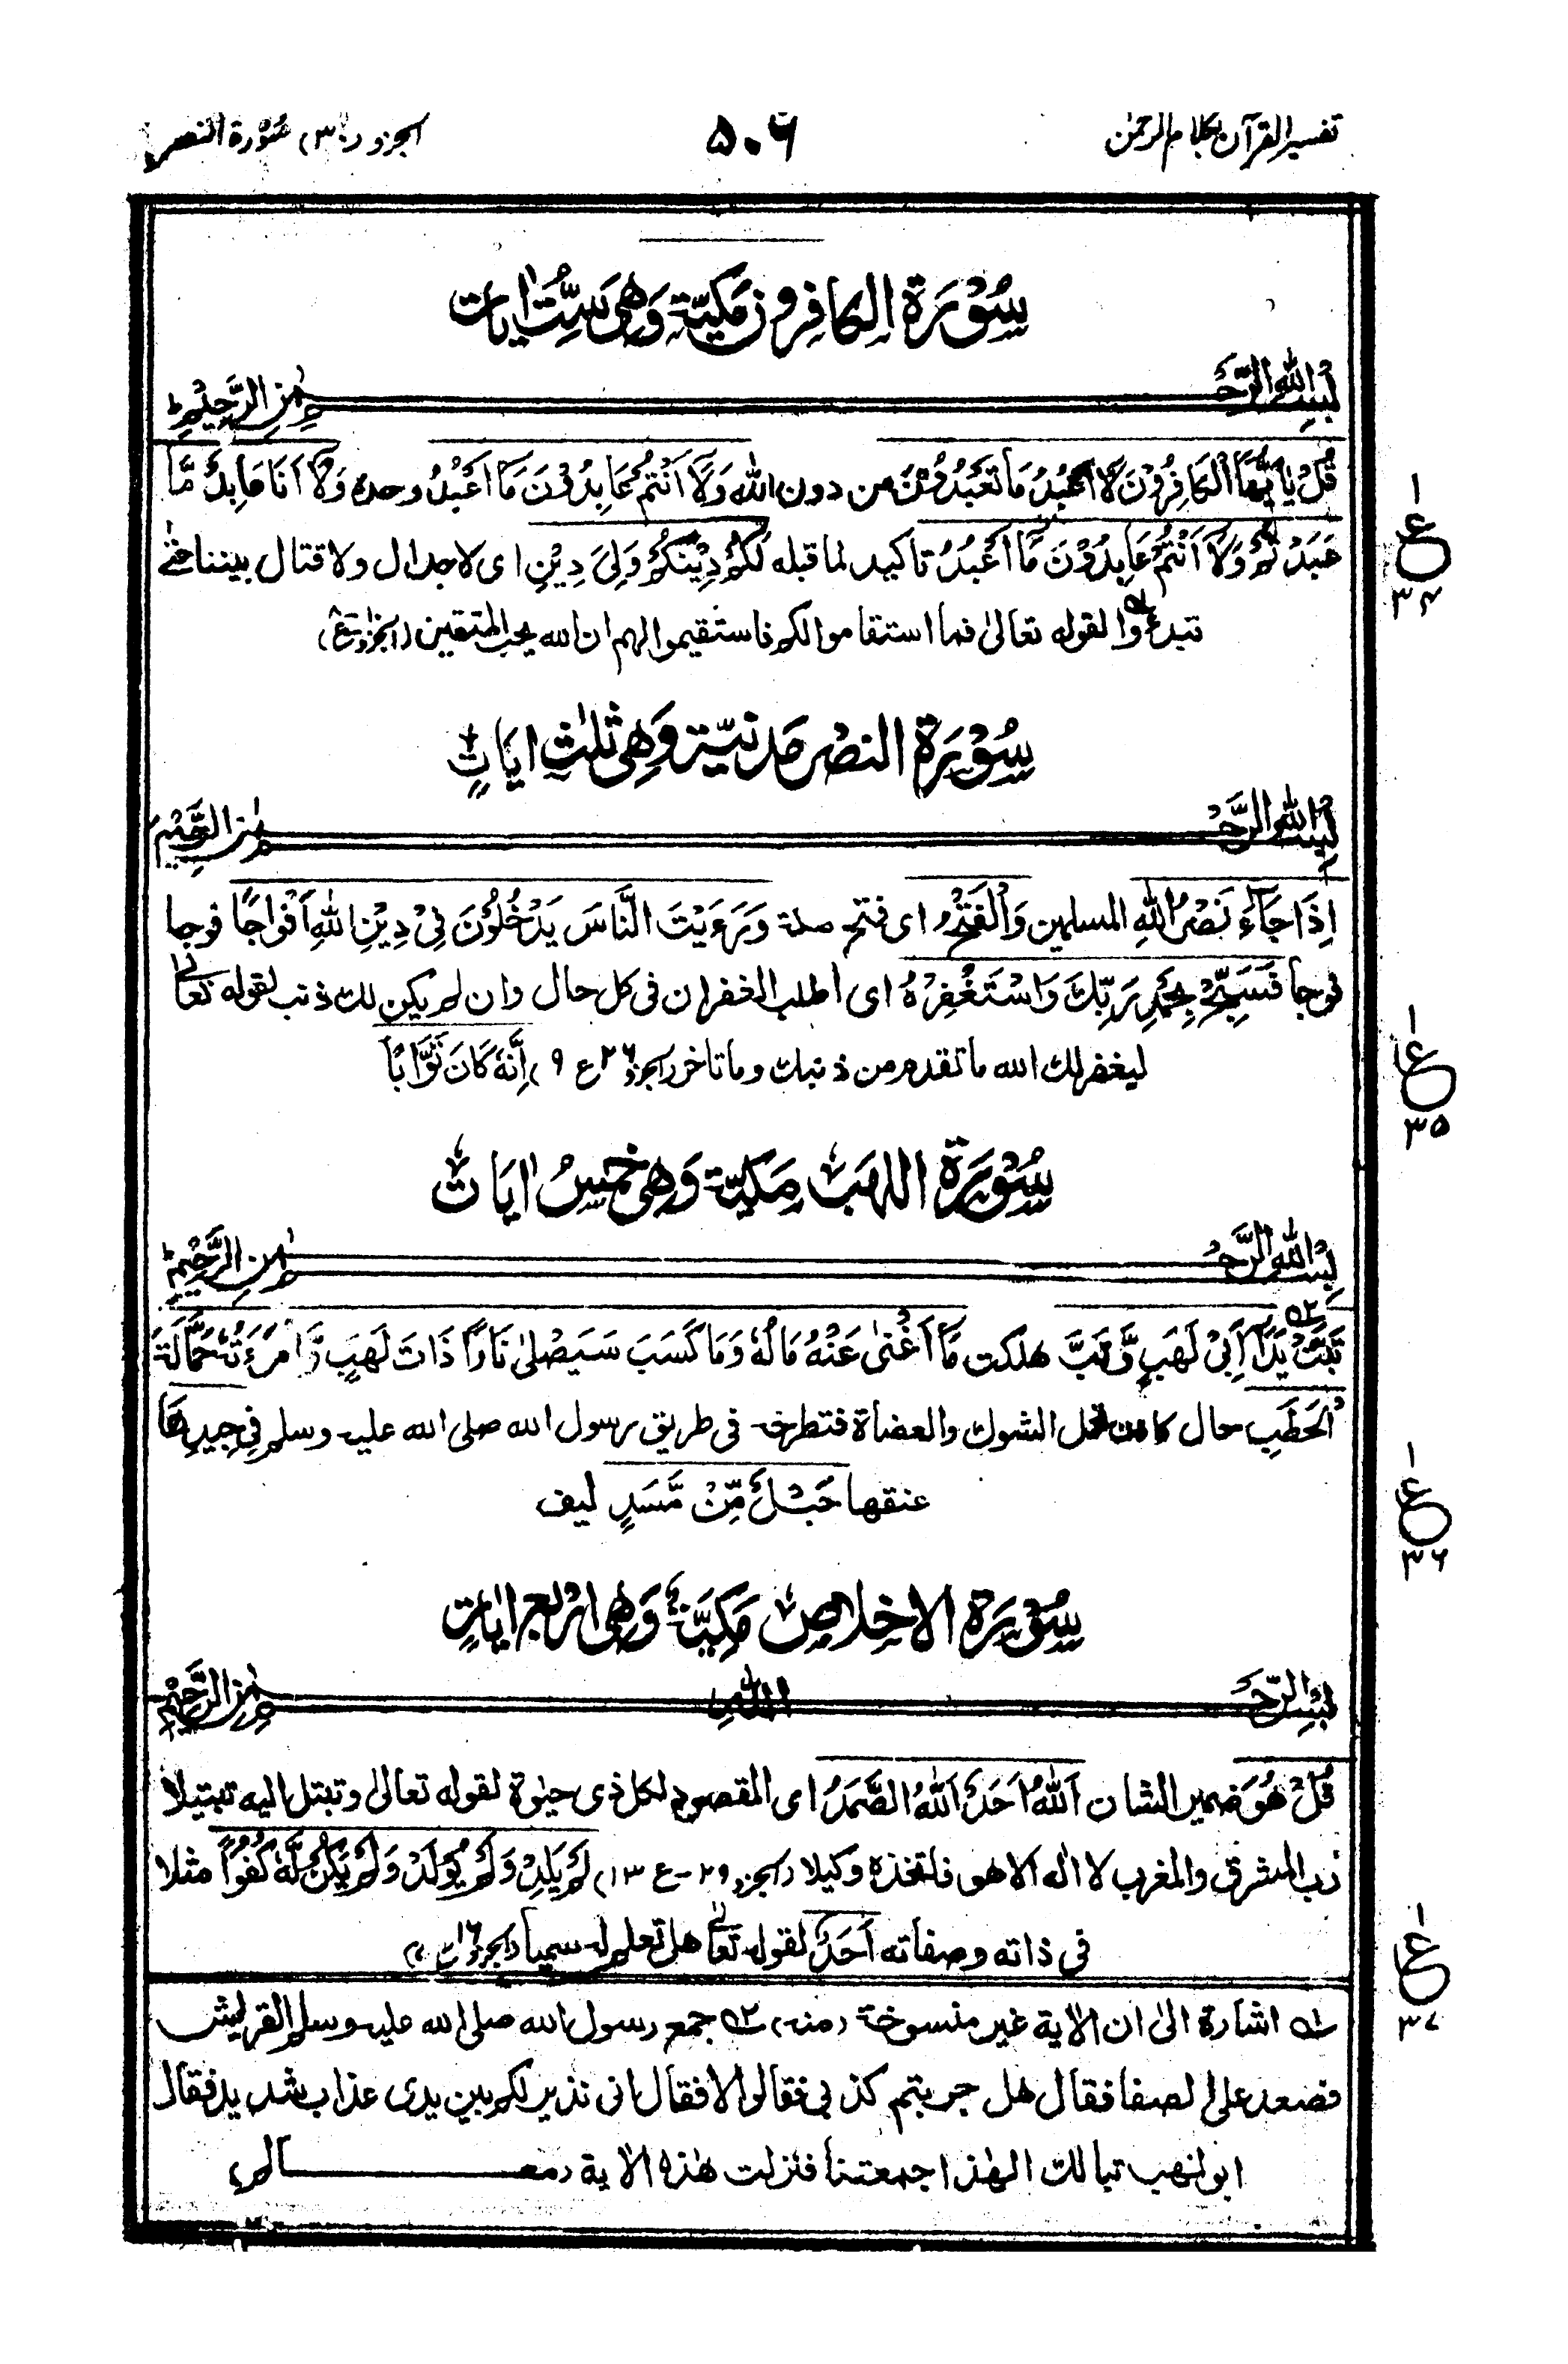 تفسير القرآن بكلام الرحمن
٥٠٦
الجزو (٣٠) سُوْرة النصر
سُوْرَة الكافرون مَكيّة وَهِىَ سِتُّ اٰيات
بِسْمِ اللهِ الرَّحْمٰنِ الرَّحِيْمِ
قُلْ يٰاَيُّهَا الْكَافِرُوْنَ لَا اَعْبُدُ مَا تَعْبُدُوْنَ من دون الله وَلَا اَنْتُمْ عَابِدُوْنَ مَا اَعْبُدُ وحده وَلَا اَنَا عَابِدٌ مَّا
عَبَدْتُمْ وَلَا اَنْتُمْ عَابِدُوْنَ مَا اَعْبُدُ تاكيد لما قبله لَكُمْ دِيْنُكُمْ وَلِىَ دِيْنِ اى لا جدال ولا قتال بيننا حتى
تبدءوا لقوله تعالىٰ فما استقاموا لكم فاستقيموا لهم ان الله يحب المتقين
سُوْرَة النصْر مَدنيّة وَهِىَ ثَلٰثُ اٰيَاتٍ
بِسْمِ اللهِ الرَّحْمٰنِ الرَّحِيْمِ
اِذَا جَآءَ نَصْرُ اللهِ المسلمين وَالْفَتْحُ اى فتح مكة وَرَءَيْتَ النَّاسَ يَدْخُلُوْنَ فِىْ دِيْنِ اللهِ اَفْوَاجًا فوجا
فوجا فَسَبِّحْ بِحَمْدِ رَبِّكَ وَاسْتَغْفِرْهُ اى اطلب الغفران فى كل حال وان لم يكن لك ذنب لقوله تعالىٰ
ليغفر لك الله ما تقدم من ذنبك وما تاخر (الجزو ٢٦ ع ٩) اِنَّهٗ كَانَ تَوَّابًا
سُوْرَة اللهَب مَكيّة وَهِىَ خَمسُ اٰيَات
بِسْمِ اللهِ الرَّحْمٰنِ الرَّحِيْمِ
تَبَّتْ يَدَآ اَبِىْ لَهَبٍ وَّتَبَّ هلكت مَا اَغْنٰى عَنْهُ مَالُهٗ وَمَا كَسَبَ سَيَصْلٰى نَارًا ذَاتَ لَهَبٍ وَّامْرَءَتُهٗ حَمَّالَةَ
الْحَطَبِ حال كانت تحمل الشوك والعضاة فتطرحه فى طريق رسول الله صلى الله عليه وسلم فِىْ جِيْدِهَا
عنقها حَبْلٌ مِّنْ مَّسَدٍ ليف
سُوْرَة الاخلاص مَكيَّة وَهِىَ اربع اٰيات
بِسْمِ اللهِ الرَّحْمٰنِ الرَّحِيْمِ
قُلْ هُوَ ضمير الشان اَللهُ اَحَدٌ اَللهُ الصَّمَدُ اى المقصود لكل ذى حيٰوة لقوله تعالىٰ وتبتل اليه تبتيلا
رب المشرق والمغرب لا اله الا هو فاتخذه وكيلا (الجزو ٢٩ - ع ١٣) لَمْ يَلِدْ وَلَمْ يُوْلَدْ وَلَمْ يَكُنْ لَّهٗ كُفُوًا مثلا
فى ذاته وصفاته اَحَدٌ لقوله تعالىٰ هل تعلم له سميا (الجزو ١٦
ـ١ـه اشارة الىٰ ان الاٰية غير منسوخة (منه) ـ٢ـه جمع رسول الله صلى الله عليه وسلم القريش
فصعد على الصفا فقال هل جربتم كذبى فقالوا لا فقال انى نذير لكم بين يدى عذاب شديد فقال
ابو لهب تبا لك الهٰذا جمعتنا فنزلت هٰذه الاٰية (معالم)
١
ع
٣٤
١
ع
٣٥
١
ع
٣٦
١
ع
٣٧